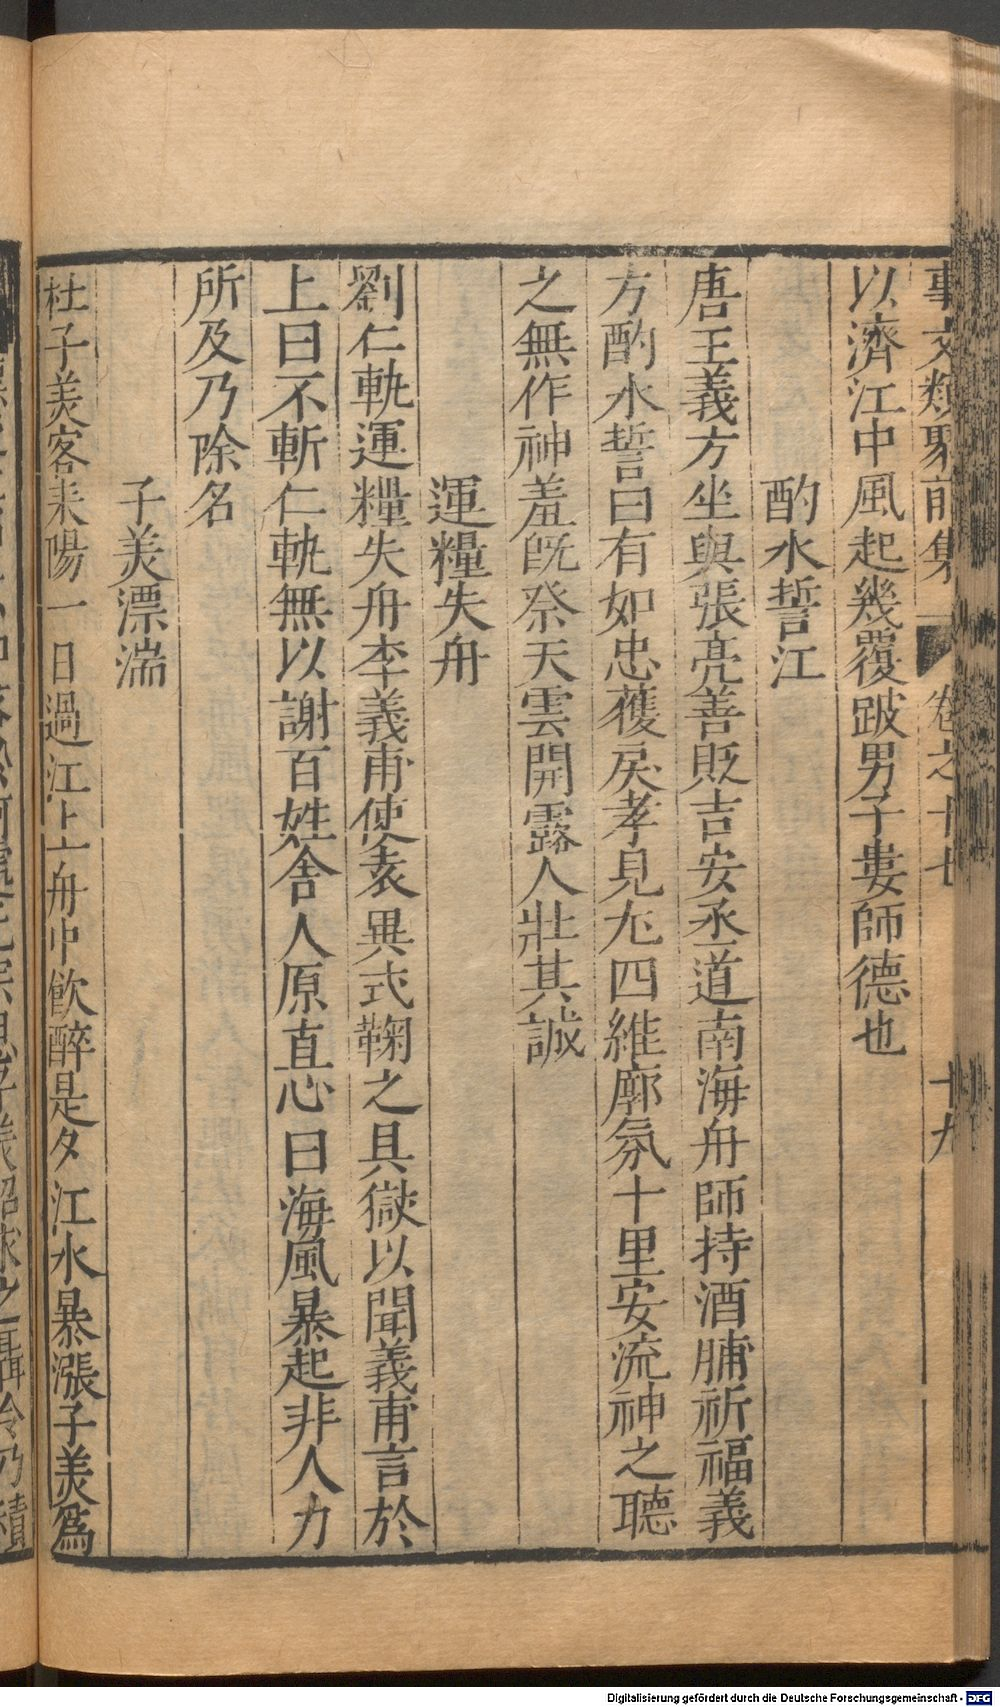 事文類聚前集 卷之十七 十九
以濟江中風起幾覆跛男子婁師德也
酌水誓江
唐王義方坐與張亮善貶吉安丞道南海舟師持酒脯祈福義
方酌水誓曰有如忠獲戾孝見尤四維廓氛十里安流神之聽
之無作神羞旣祭天雲開露人壯其誠
運糧失舟
劉仁軌運糧失舟李義甫使袁異式鞫之具獄以聞義甫言於
上曰不斬仁軌無以謝百姓舍人原直心曰海風暴起非人力
所及乃除名
子美漂湍
杜子美客耒陽一日過江上舟中飲醉是夕江水暴漲子美爲
Digitalisierung gefördert durch die Deutsche Forschungsgemeinschaft - DFG